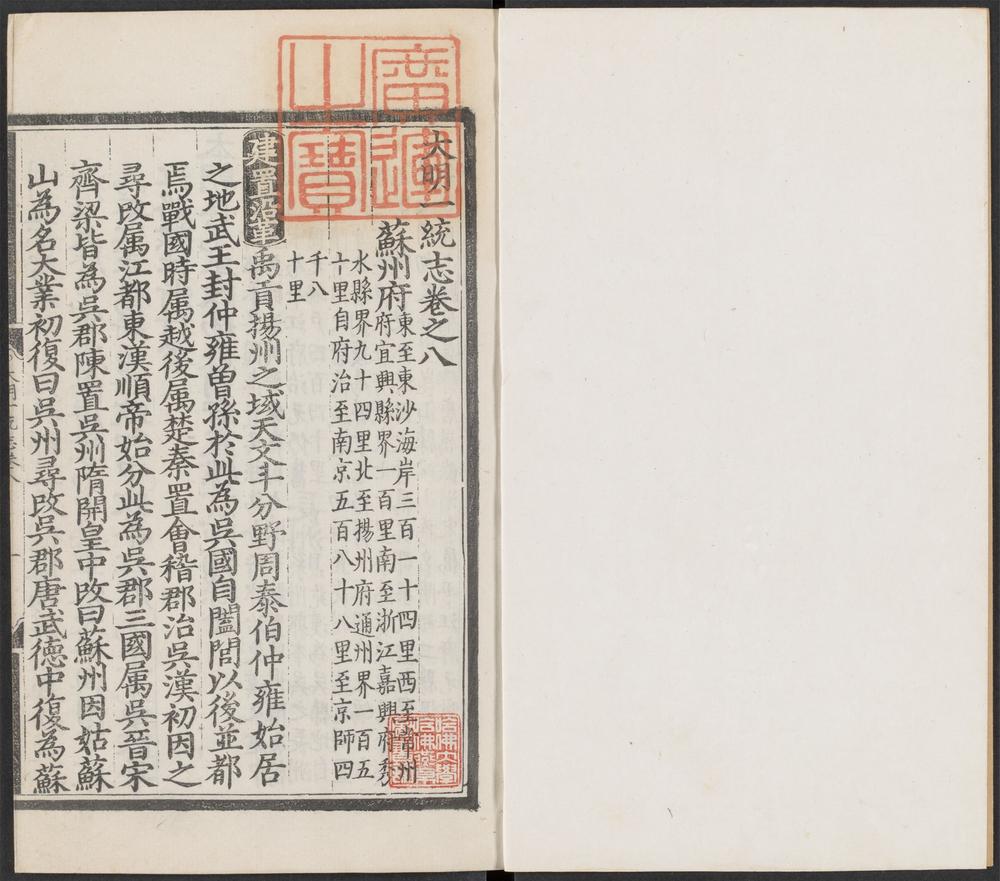 廣運
之寶
大明一統志卷之八
蘇州府
東至東沙海岸三百一十四里西至常州
府宜興縣界一百里南至浙江嘉興府秀
水縣界九十四里北至揚州府通州界一百五
十里自府治至南京五百八十八里至京師四
千八
十里
建置沿革禹貢揚州之域天文斗分野周泰伯仲雍始居
之地武王封仲雍曾孫於此為吳國自闔閭以後並都
焉戰國時属越後属楚秦置會稽郡治吳漢初因之
尋改属江都東漢順帝始分此為吳郡三國属吳晉宋
齊梁皆為吳郡陳置吳州隋開皇中改曰蘇州因姑蘇
山為名大業初復曰吳州尋改吳郡唐武徳中復為蘇